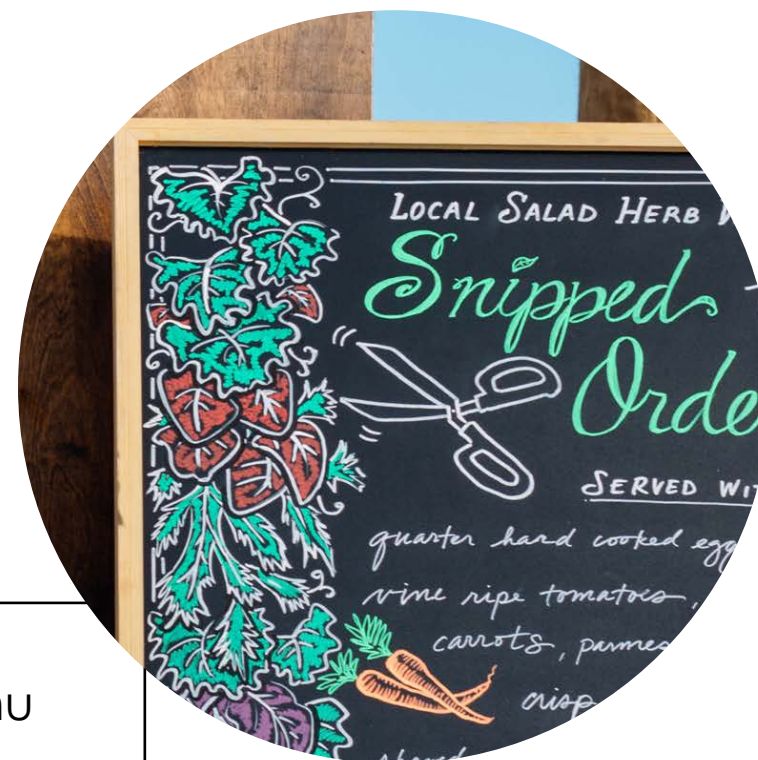 LOCAL SALAD HERB
Snipped
SERVED
quarter hard cooked
vine ripe tomatoes,
carrots,
crisp